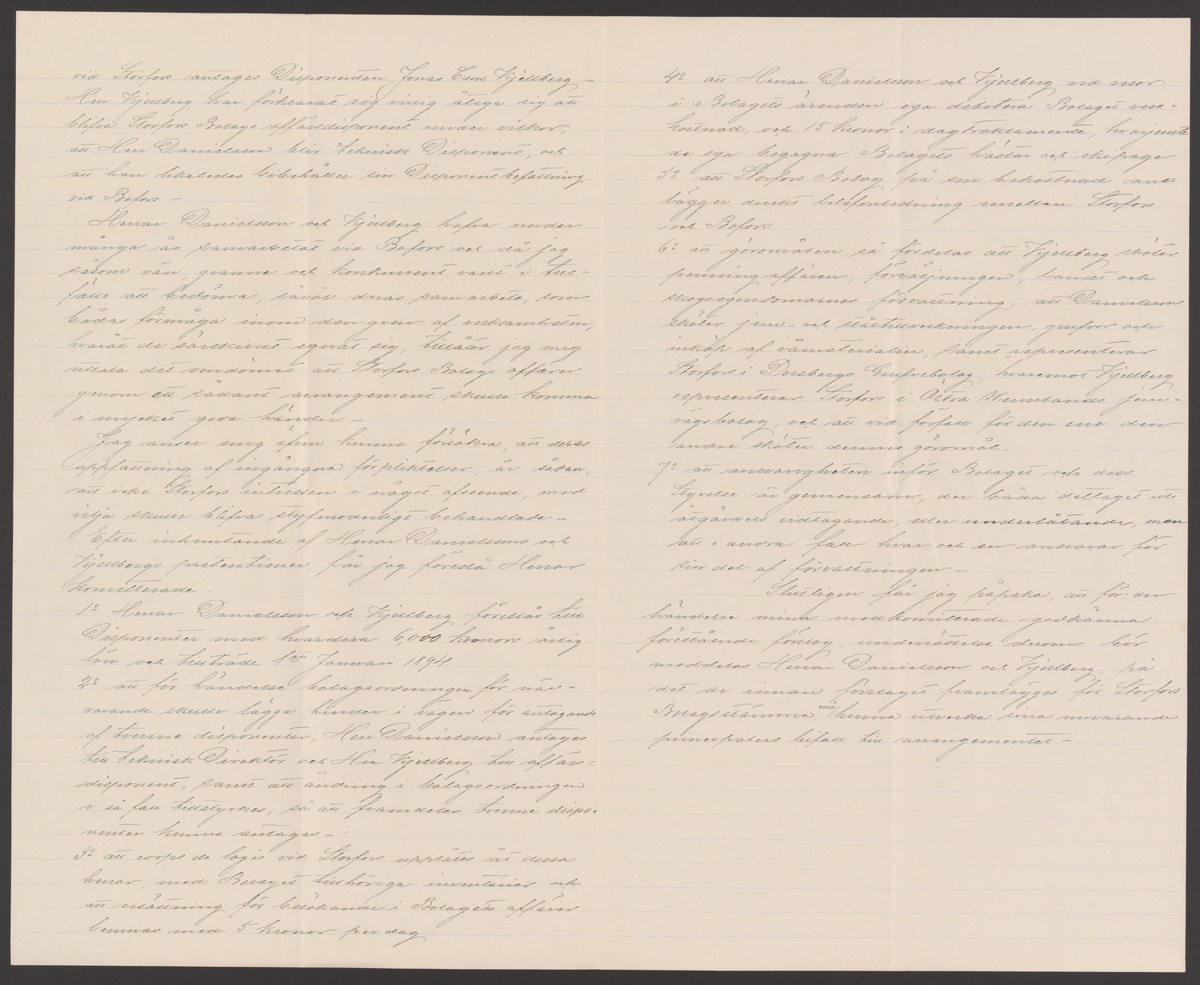 vid Storfors antages Disponenten Jonas Cson Kjellberg –
Herr Kjellberg har förklarat sig villig åtaga sig att
blifva Storfors Bolags affärsdisponent under vilkor,
att Herr Danielsson blir teknisk Disponent, och
att han likaledes bibehåller sin Disponentbefattning
vid Bofors –
Herrar Danielsson och Kjellberg hafva under
många år samarbetat vid Bofors och då jag
såsom vän, granne och konkurrent varit i till-
fälle att bedöma, såväl deras samarbete, som
bådas förmåga inom den gren af verksamheten,
hvaråt de särskildt egnat sig, tillåter jag mig
uttala det omdömet att Storfors Bolags affärer
genom ett sådant arrangement skulle komma
i mycket goda händer –
Jag anser mig äfven kunna försäkra, att deras
uppfattning af ingångna förpliktelser, är sådan,
att icke Storfors intressen i något afseende, med
vilja skulle blifva styfmoderligt behandlade –
Efter inhemtande af Herrar Danielssons och
Kjellbergs pretentioner, får jag föreslå Herrar
Komitterade:
1º Herrar Danielsson och Kjellberg föreslås till
Disponenter med hvardera 6,000 kronors årlig
lön och tillträde 1sta Januari 1894
2º att för händelse bolagsordningen för när-
varande skulle lägga hinder i vägen för antagande
af tvenne disponenter, Herr Danielsson antages
till teknisk Direktör och Herr Kjellberg till affärs-
disponent, samt att ändring i bolagsordningen
i så fall tillstyrkes, så att framdeles tvenne dispo-
nenter kunna antagas –
3º att corps de logis vid Storfors upplåtes åt dessa
herrar, med Bolaget tillhöriga inventarier och
att ersättning för besökande i Bolagets affärer
lemnas med 5 kronor per dag.
4º att Herrar Danielsson och Kjellberg vid resor
i Bolagets ärenden ega debitera Bolaget rese-
kostnad, och 15 kronor i dagtraktamente, hvarjemte
de ega begagna Bolagets hästar och ekipage
5º att Storfors Bolag på sin bekostnad an-
lägger direkt telefonledning emellan Storfors
och Bofors
6º att göromålen så fördelas att Kjellberg sköter
penningaffären, försäljningen, landt och
skogsegendomarnes förvaltning, att Danielsson
sköter jern- och ståltillverkningen, grufvor och
inköp af råmaterialier, samt representerar
Storfors i Persbergs Grufvebolag, hvaremot Kjellberg
representerar Storfors i Östra Wermlands jern-
vägsbolag, och att vid förfall för den ene den
andre sköter dennes göromål.
7º att ansvarigheten inför Bolaget och dess
Styrelse är gemensam, der båda deltagit uti
åtgärders vidtagande, eller underlåtande, men
att i andra fall hvar och en ansvarar för
sin del af förvaltningen –
Slutligen får jag påpeka, att för den
händelse mina medkomiterade godkänna
förestående förslag, underrättelse derom bör
meddelas Herrar Danielsson och Kjellberg, på
det de innan förslaget framlägges för Storfors
Bolagsstämma, må kunna utverka sina nuvarande
principalers bifall till arrangementet –